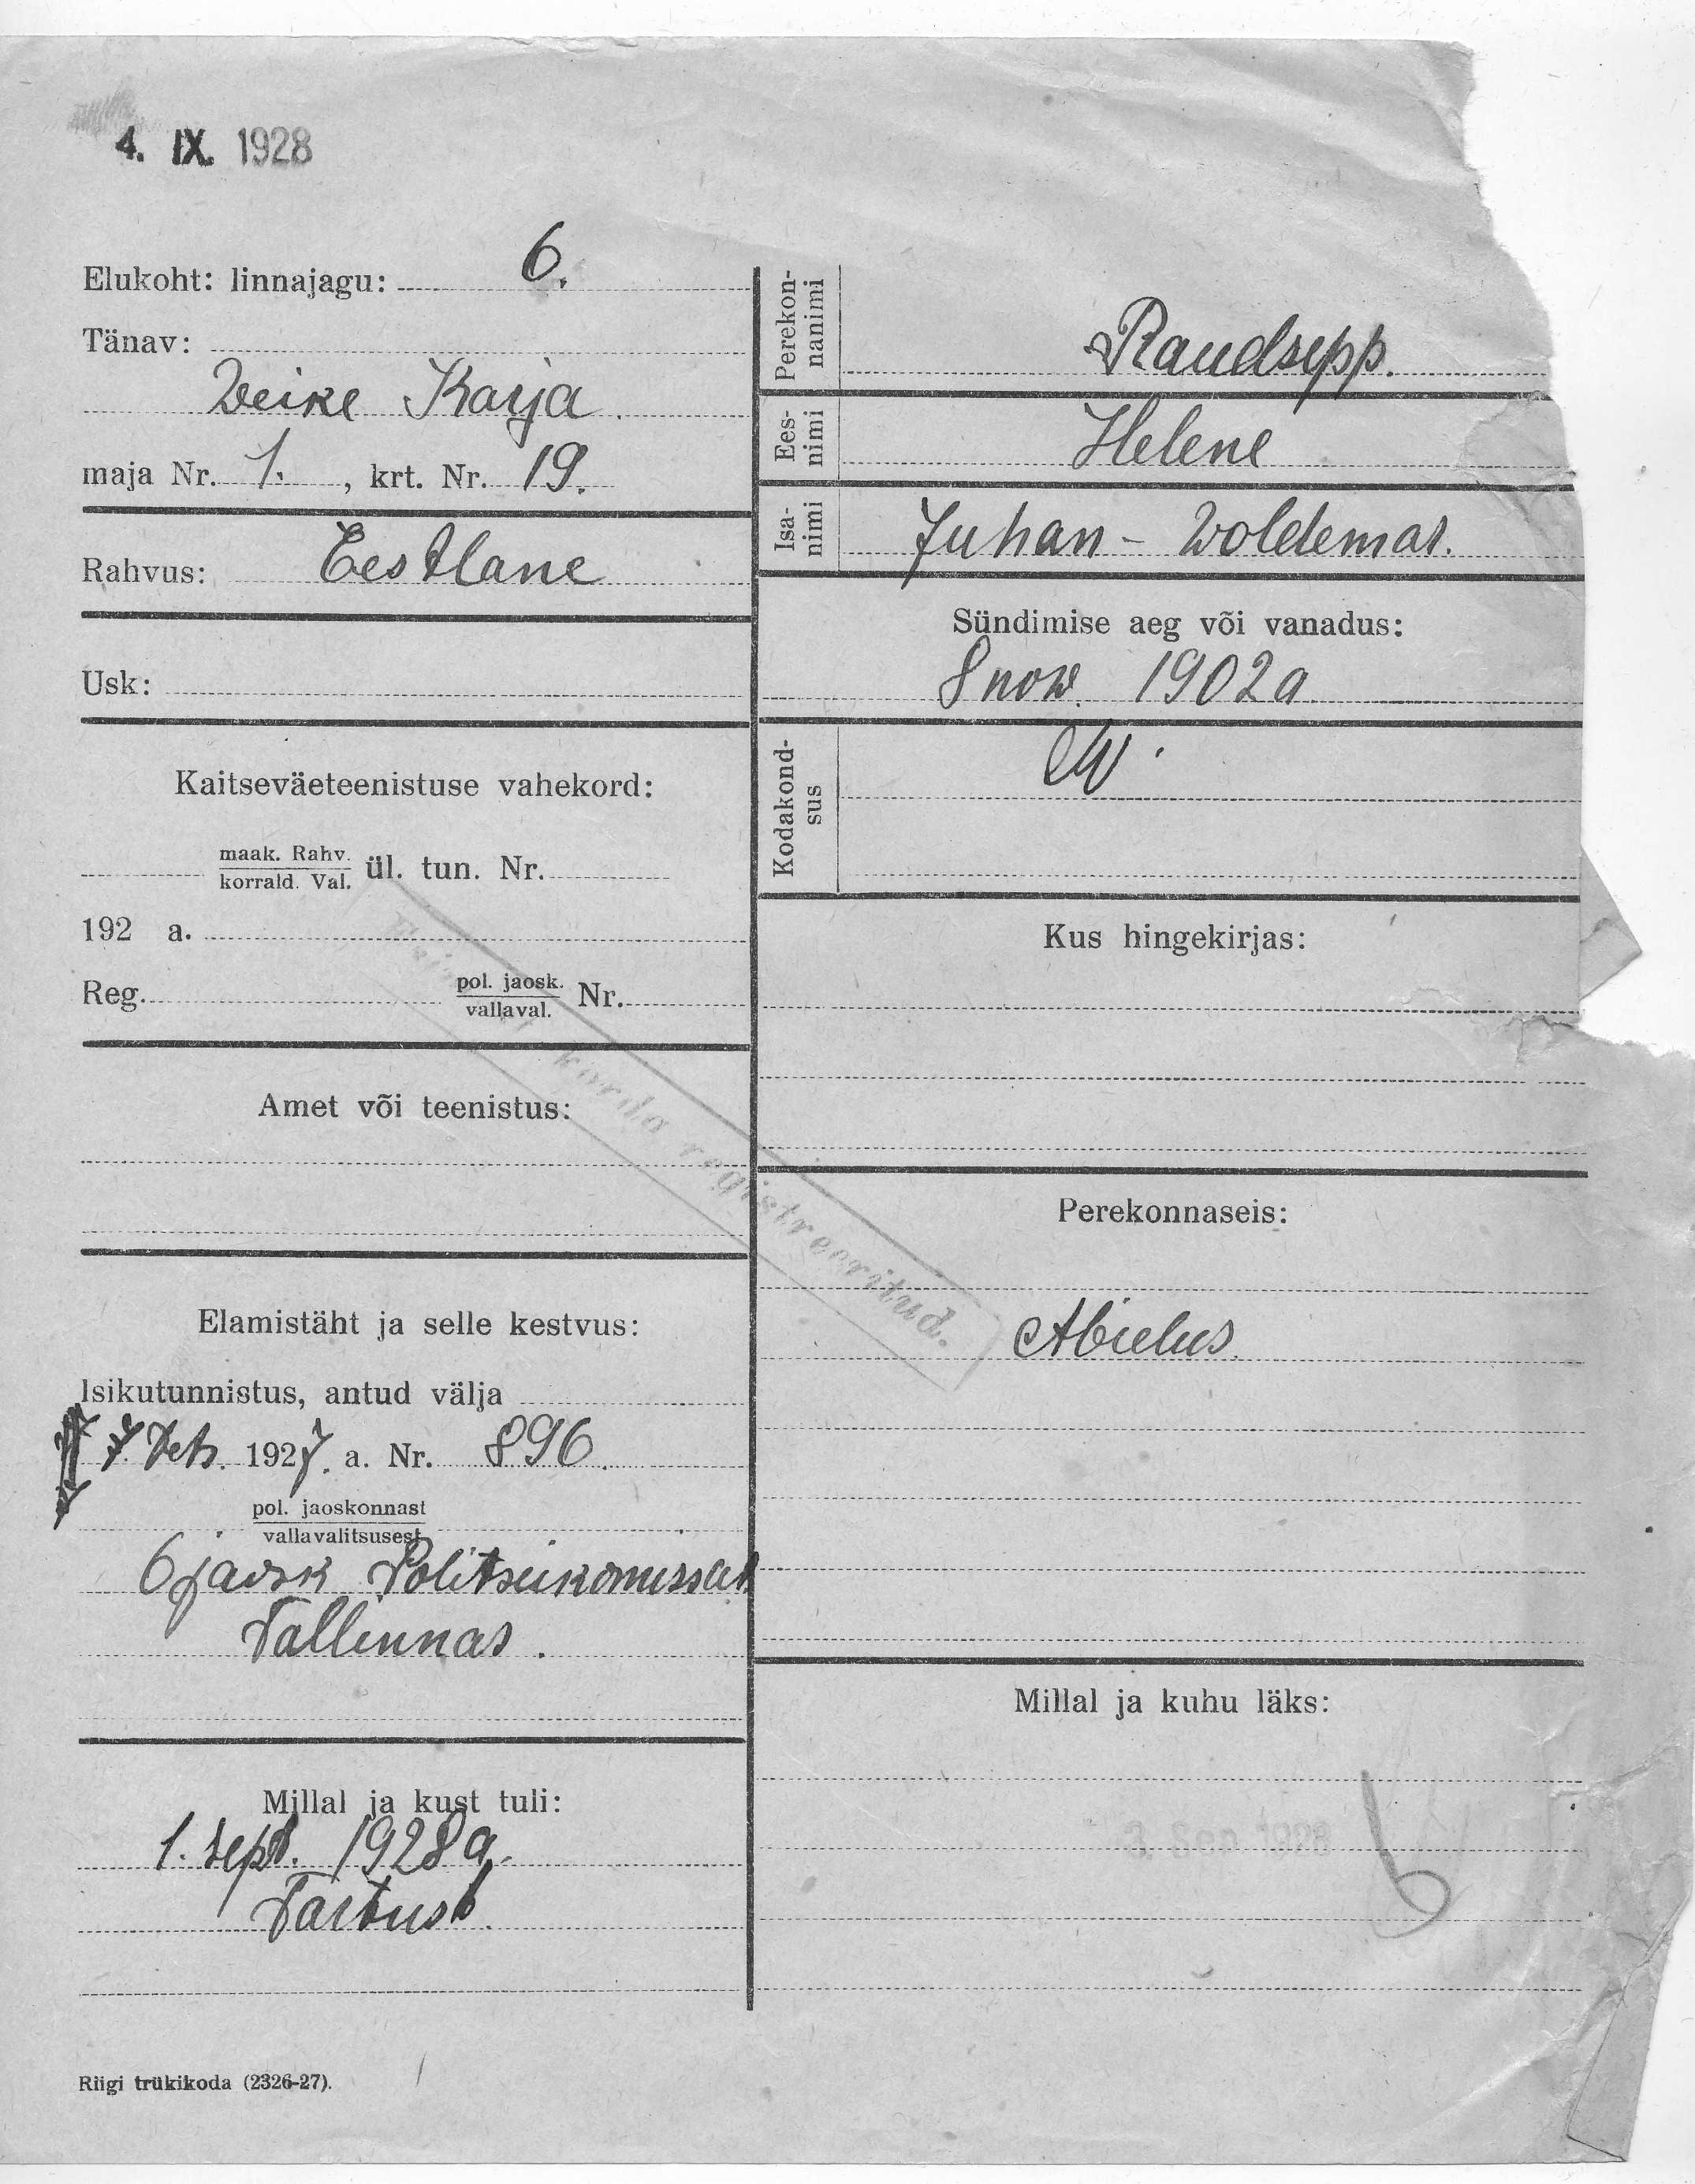 4. IX. 1928
Elukoht: linnajagu: 6.
Tänav:
Weike Karja.
maja Nr. 1. , krt. Nr. 19.
Rahvus: Eestlane
Usk:
Kaitseväeteenistuse vahekord:
maak. Rahv.
korrald. Val. ül. tun. Nr.
192 a.
Reg. pol. jaosk. Nr.
vallaval.
Amet või teenistus:
Elamistäht ja selle kestvus:
Isikutunnistus, antud välja
7. Dets. 1927. a. Nr. 896.
pol. jaoskonnast
vallavalitsusest
6 jaosk Politseikomissar
Tallinnas.
Millal ja kust tuli:
1. sept. 1928 a.
Tartust.
Riigi trükikoda (2326-27).
Perekon-
nanimi
Raudsepp.
Ees-
nimi
Helene
Isa-
nimi
Juhan - Woldemar.
Sündimise aeg või vanadus:
8 now. 1902 a
Kodakond-
sus
EW.
Kus hingekirjas:
korda registreeritud.
Perekonnaseis:
Abielus.
Millal ja kuhu läks:
3. Sep 1928
6